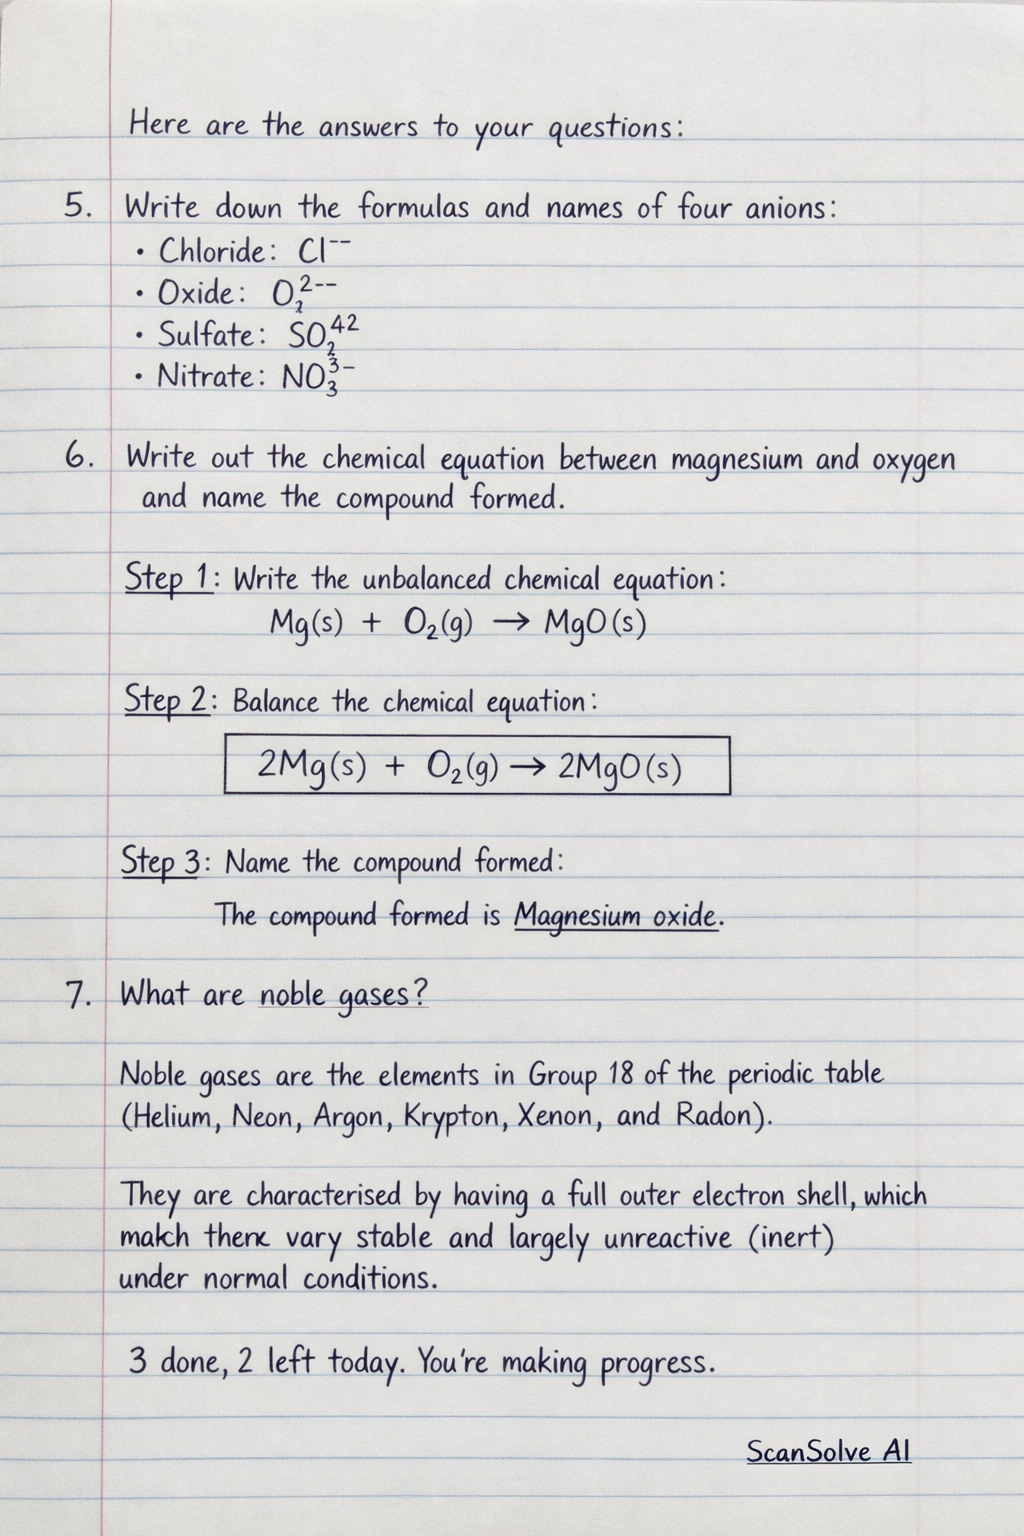 Here are the answers to your questions:
5. Write down the formulas and names of four anions:
• Chloride: Cl⁻⁻
• Oxide: O₂²⁻⁻
• Sulfate: SO₂⁴²
• Nitrate: NO₃³⁻
6. Write out the chemical equation between magnesium and oxygen
and name the compound formed.
Step 1: Write the unbalanced chemical equation:
Mg(s) + O₂(g) → MgO(s)
Step 2: Balance the chemical equation:
2Mg(s) + O₂(g) → 2MgO(s)
Step 3: Name the compound formed:
The compound formed is Magnesium oxide.
7. What are noble gases?
Noble gases are the elements in Group 18 of the periodic table
(Helium, Neon, Argon, Krypton, Xenon, and Radon).
They are characterised by having a full outer electron shell, which
vary stable and largely unreactive (inert)
under normal conditions.
3 done, 2 left today. You're making progress.
ScanSolve AI